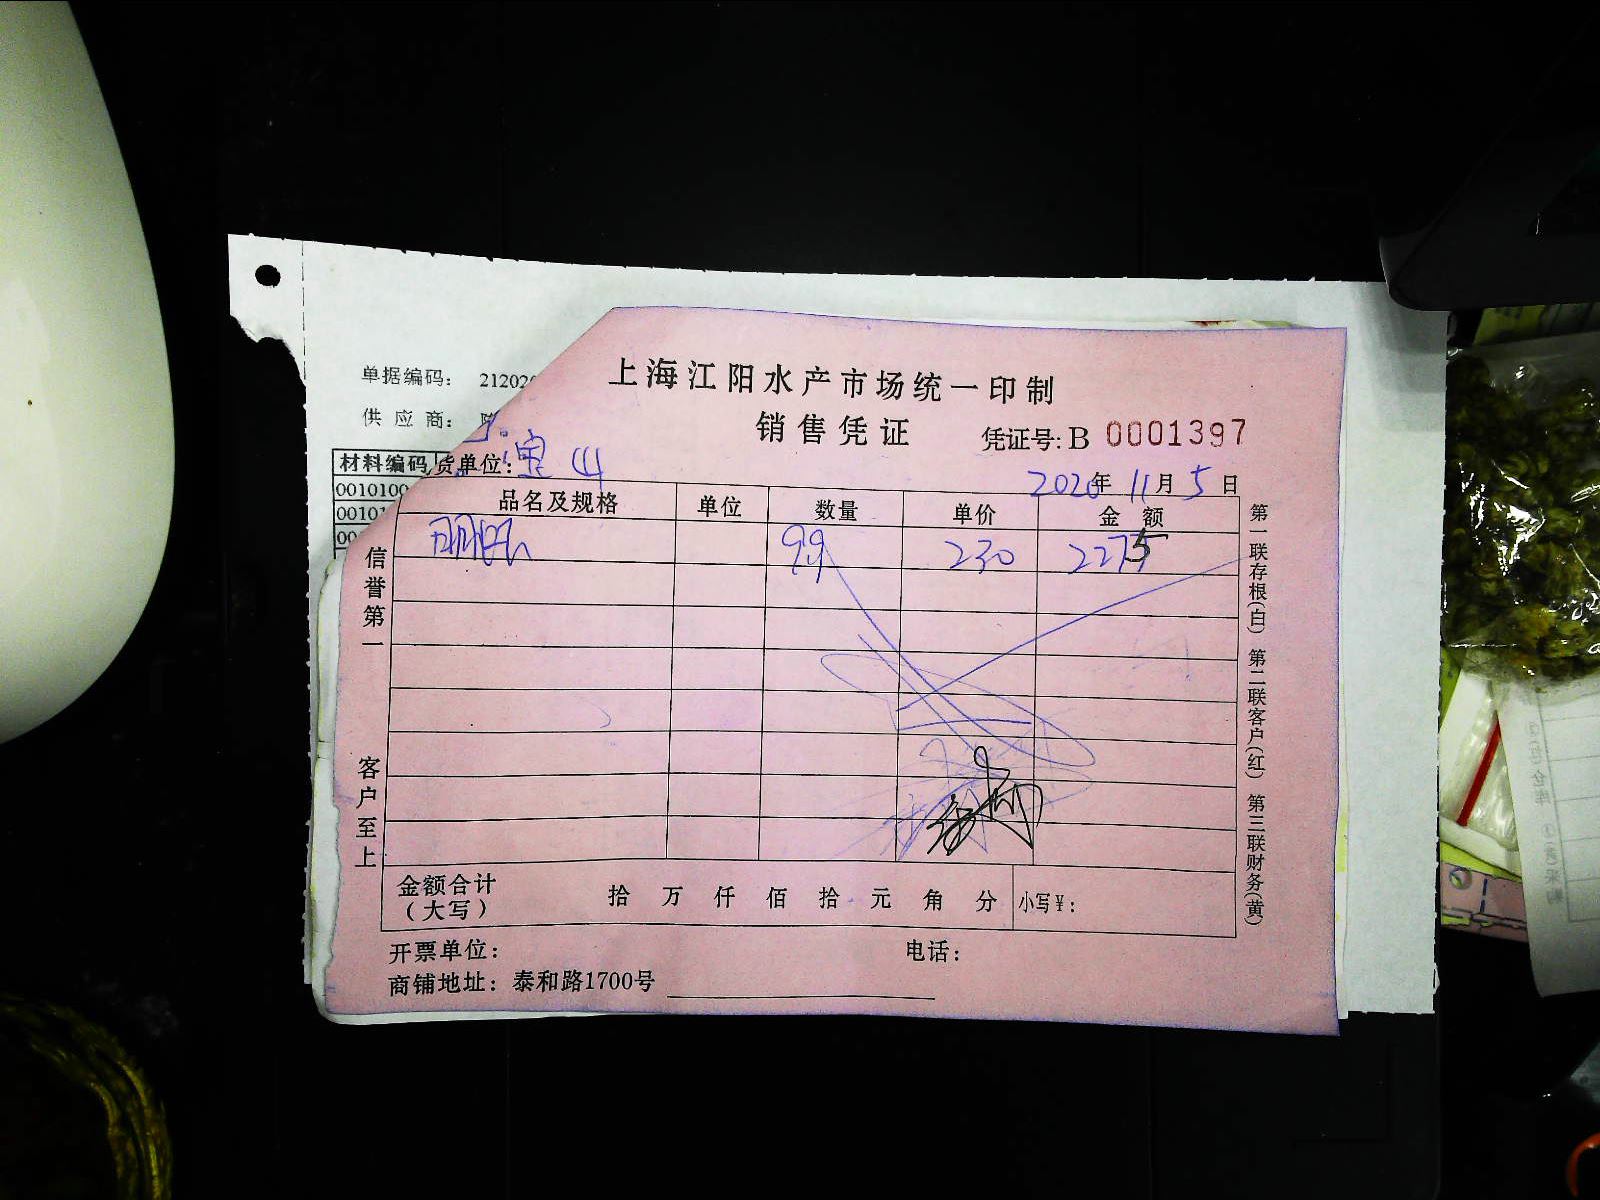 上海江阳水产市场统一印制
销售凭证
凭证号: B 0001397
单据编码: 21202
供应商:
材料编码
货单位: 宝山
2020年 11月 5日
品名及规格 单位 数量 单价 金额
99 230 2275
0010100
00101
00
信誉第一
客户至上
第一联存根(白) 第二联客户(红) 第三联财务(黄)
金额合计(大写) 拾 万 仟 佰 拾 元 角 分 小写¥:
开票单位: 电话:
商铺地址: 泰和路1700号